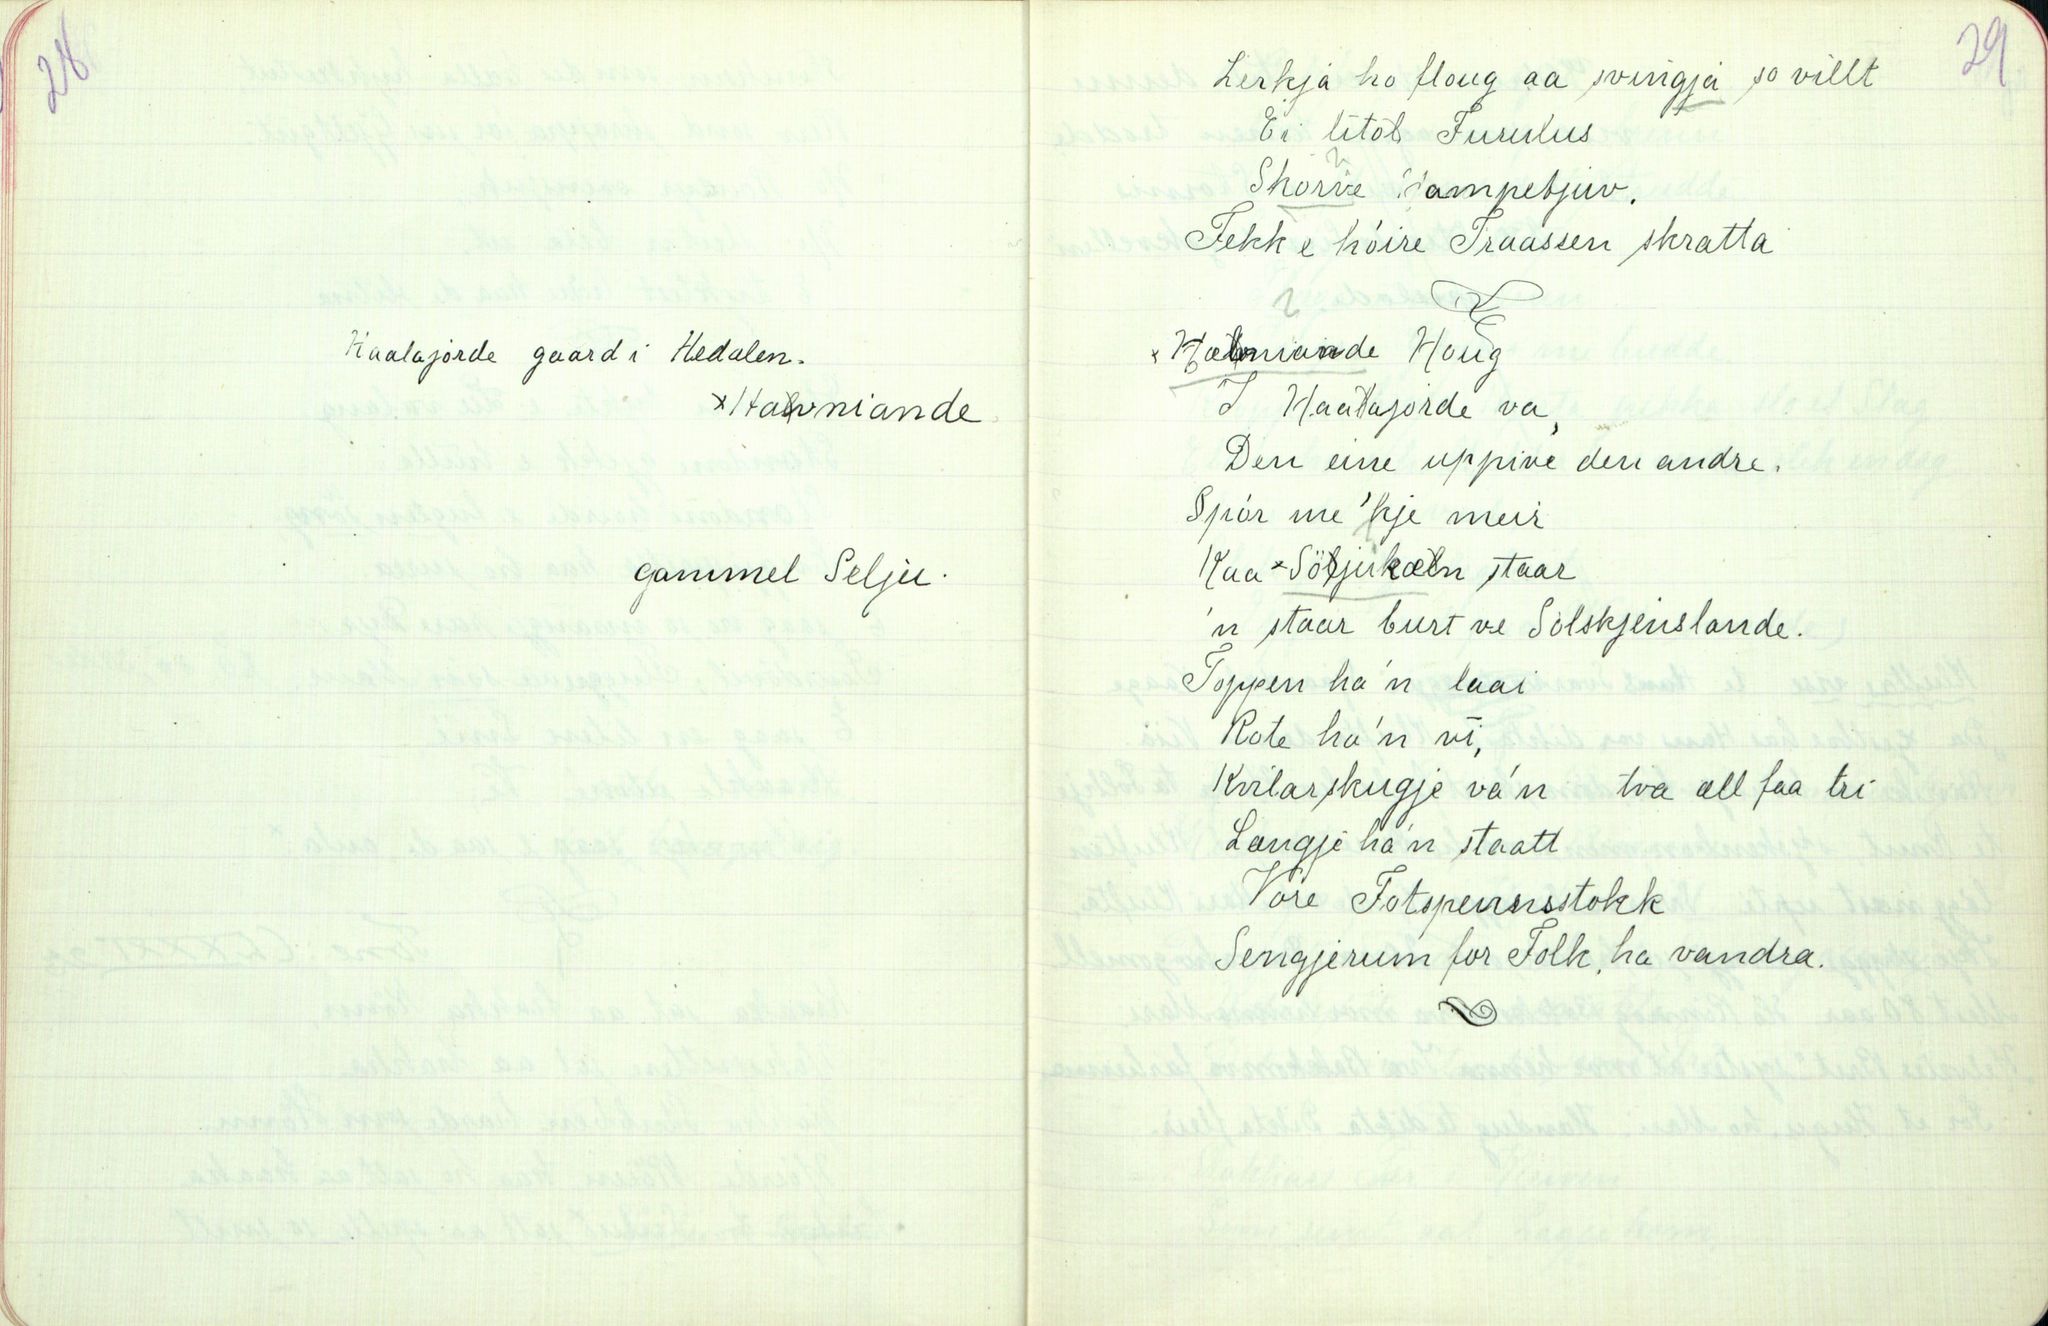 28
Haalajorde gaard i Hedalen.
×Halvniande
gammel Selju.
29
Lerkja ho floug aa svingja so villt
Ei litol Furulus
Skorve
Fekk e höire Traassen skratta
Houg
I Haalajorde va,
Den eine uppivé den andre.
Spör me 'kje meir
Kaa ×Söljukæln staar
'n staar burt ve Solskjenslande.
Toppen ha'n laai
Rote ha'n vi,
Kvilarskugje va'n tva all faa tri
Langje ha'n staatt
Vore Fotspennsstokk
Sengjerum for Folk, ha vandra.